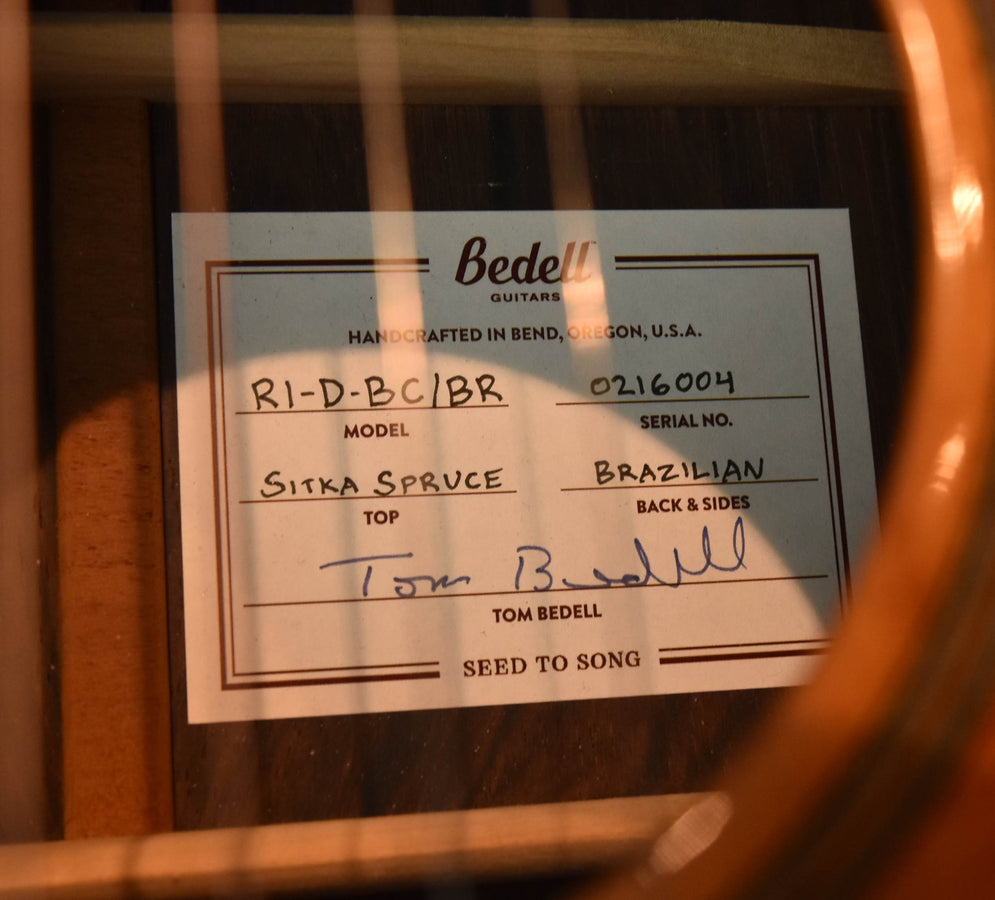 Bedell™
GUITARS
HANDCRAFTED IN BEND, OREGON, U.S.A.
R1-D-BC/BR 0216004
MODEL SERIAL NO.
SITKA SPRUCE BRAZILIAN
TOP BACK & SIDES
Tom Bedell
TOM BEDELL
SEED TO SONG